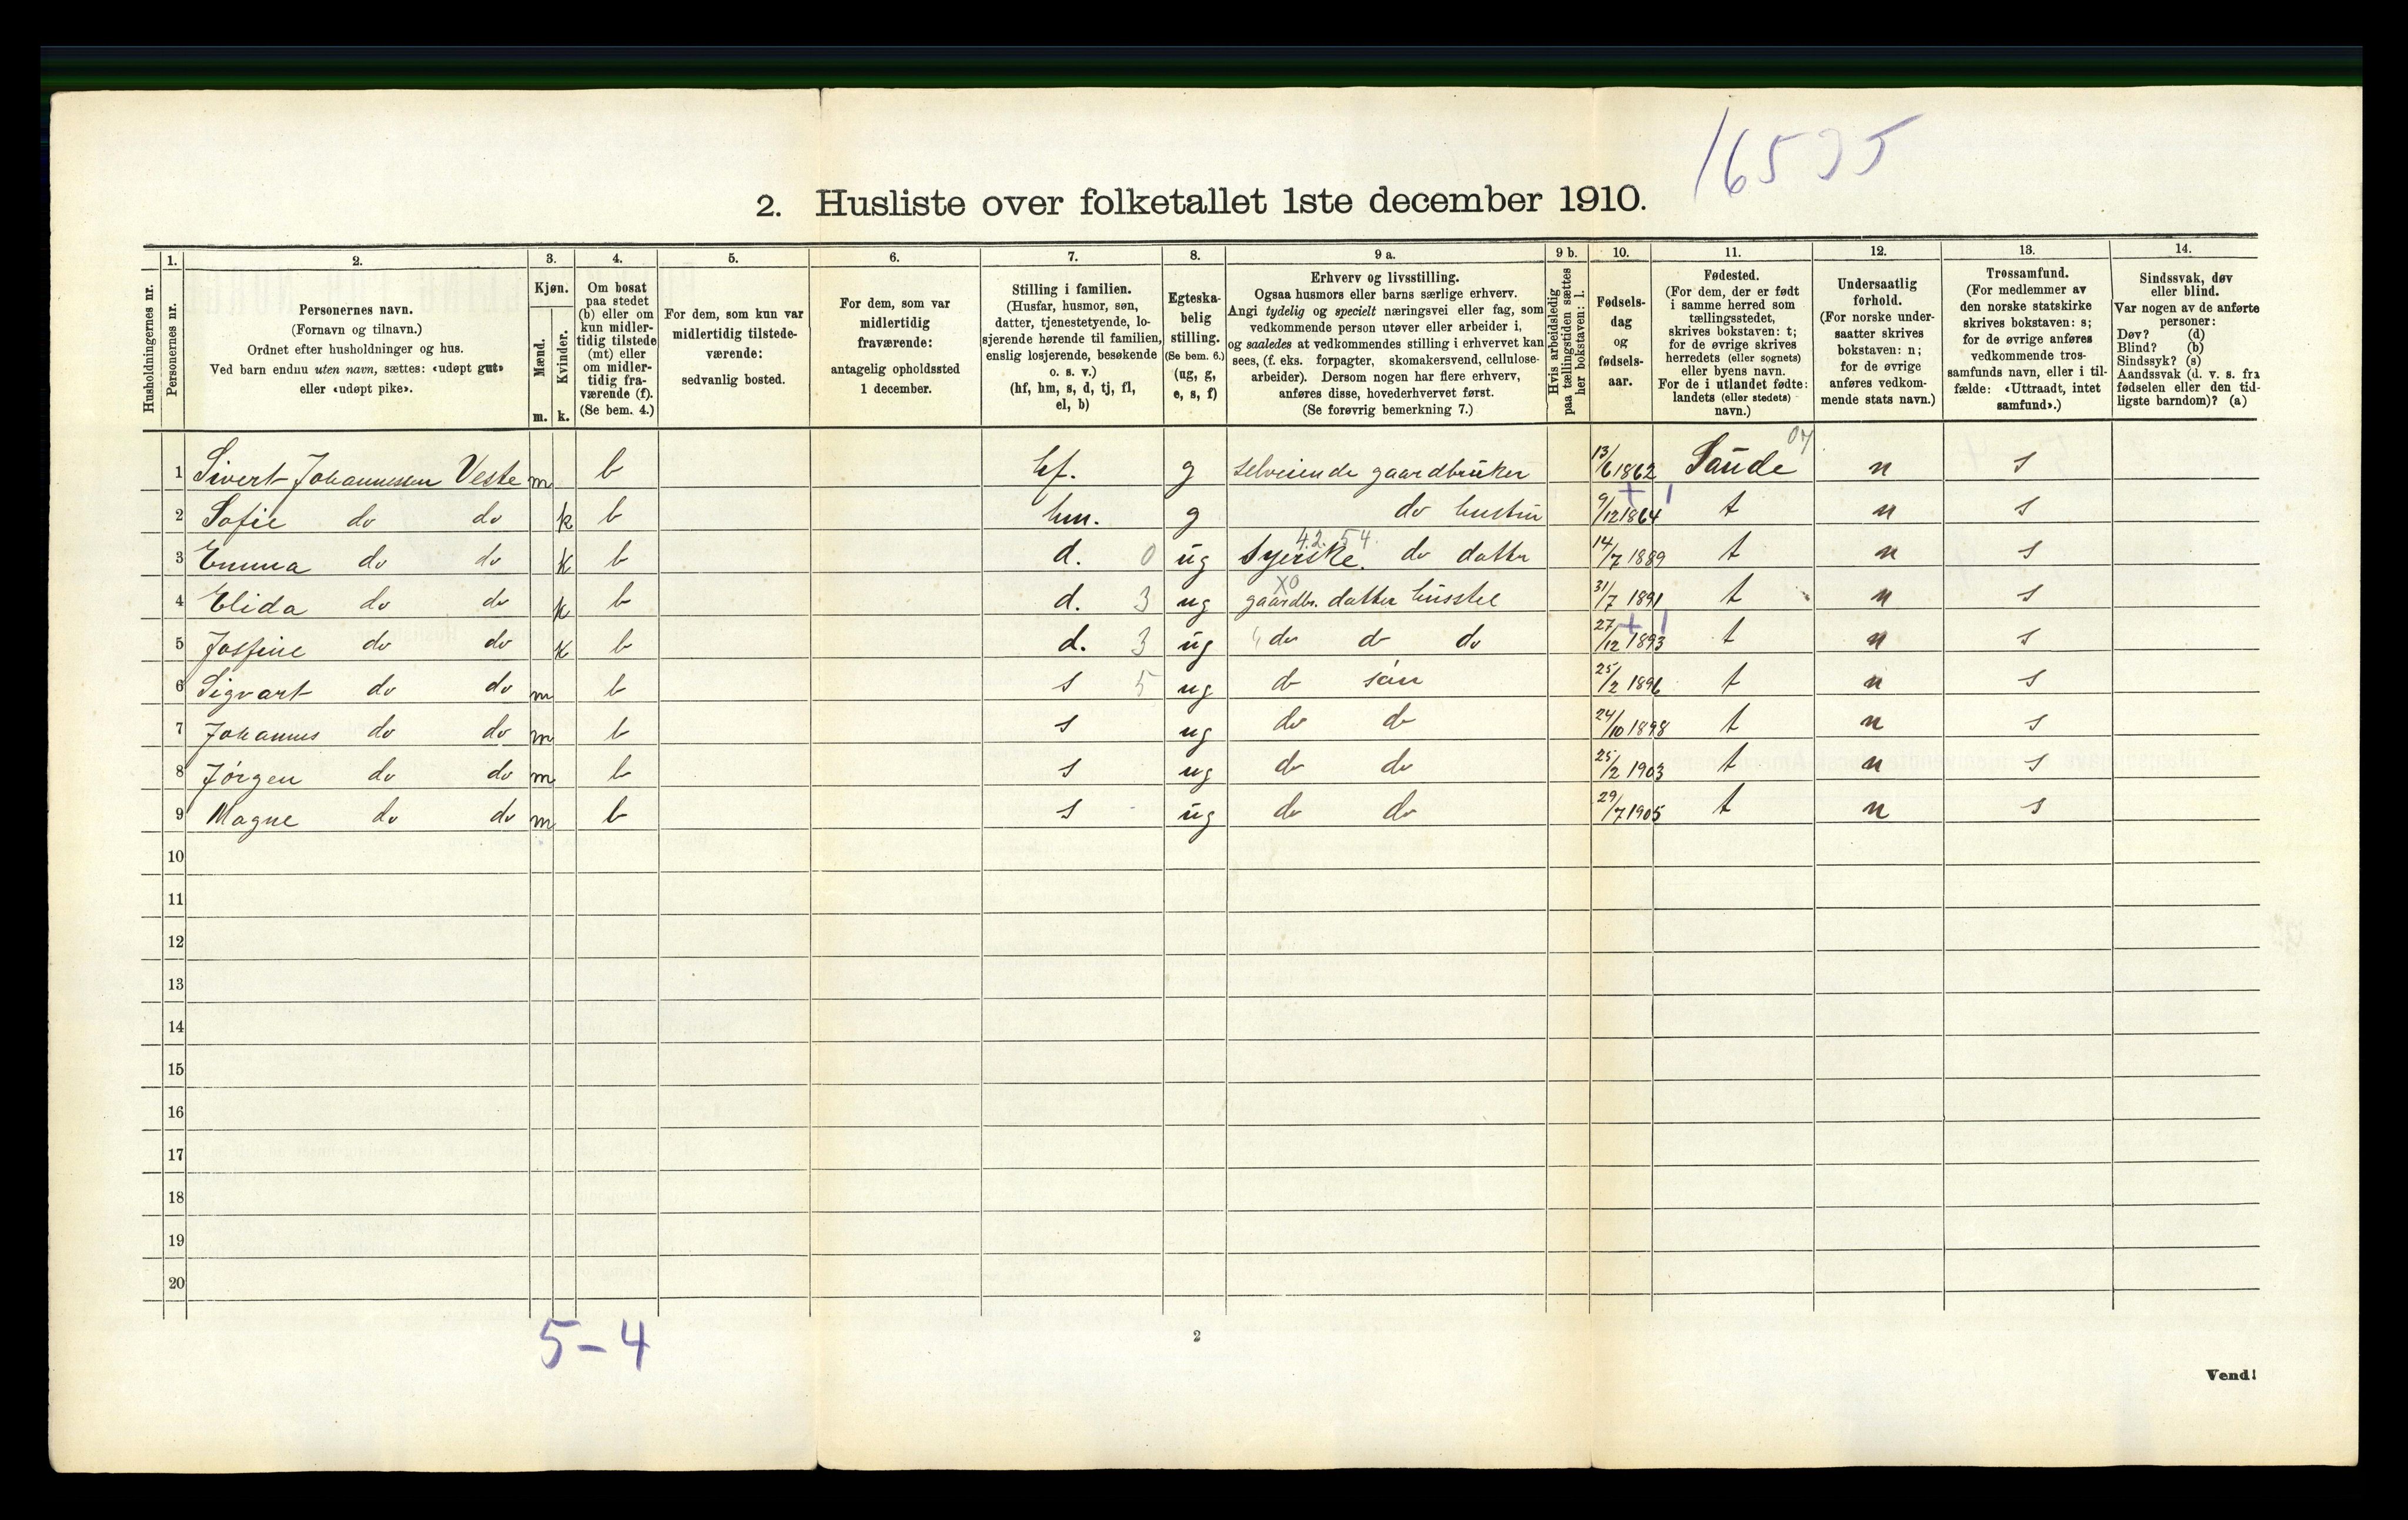 16535
2. Husliste over folketallet 1ste december 1910.
Husholdningernes nr.
1. Personernes nr.
2. Personernes navn.
(Fornavn og tilnavn.)
Ordnet efter husholdninger og hus.
Ved barn endnu uten navn, sættes: «udøpt gut»
eller «udøpt pike».
3. Kjøn.
Mænd. m.
Kvinder. k.
4. Om bosat
paa stedet
(b) eller om
kun midler-
tidig tilstede
(mt) eller
om midler-
tidig fra-
værende (f).
(Se bem. 4.)
5. For dem, som kun var
midlertidig tilstede-
værende:
sedvanlig bosted.
6. For dem, som var
midlertidig
fraværende:
antagelig opholdssted
1 december.
7. Stilling i familien.
(Husfar, husmor, søn,
datter, tjenestetyende, lo-
sjerende hørende til familien,
enslig losjerende, besøkende
o. s. v.)
(hf, hm, s, d, tj, fl,
el, b)
8. Egteska-
belig
stilling.
(Se bem. 6.)
(ug, g,
e, s, f)
9 a. Erhverv og livsstilling.
Ogsaa husmors eller barns særlige erhverv.
Angi tydelig og specielt næringsvei eller fag, som
vedkommende person utøver eller arbeider i,
og saaledes at vedkommendes stilling i erhvervet kan
sees, (f. eks. forpagter, skomakersvend, cellulose-
arbeider). Dersom nogen har flere erhverv,
anføres disse, hovederhvervet først.
(Se forøvrig bemerkning 7.)
9 b. Hvis arbeidsledig
paa tællingstiden sættes
her bokstaven: l.
10. Fødsels-
dag
og
fødsels-
aar.
11. Fødested.
(For dem, der er født
i samme herred som
tællingsstedet,
skrives bokstaven: t;
for de øvrige skrives
herredets (eller sognets)
eller byens navn.
For de i utlandet fødte:
landets (eller stedets)
navn.)
12. Undersaatlig
forhold.
(For norske under-
saatter skrives
bokstaven: n;
for de øvrige
anføres vedkom-
mende stats navn.)
13. Trossamfund.
(For medlemmer av
den norske statskirke
skrives bokstaven: s;
for de øvrige anføres
vedkommende tros-
samfunds navn, eller i til-
fælde: «Uttraadt, intet
samfund».)
14. Sindssvak, døv
eller blind.
Var nogen av de anførte
personer:
Døv? (d)
Blind? (b)
Sindssyk? (s)
Aandssvak (d. v. s. fra
fødselen eller den tid-
ligste barndom)? (a)
07
1 Sivert Johannessen Veste m b hf. g selveiende gaardbruker 13/6 1862 Saude n s
+ 1
2 Sofie do do k b hm. g do hustru 9/12 1864 t n s
42.54.
3 Emma do do k b d. 0 ug Syerske. do datter 14/7 1889 t n s
X0
4 Elida do do k b d. 3 ug gaardbr. datter husstel 31/7 1891 t n s
+ 1
5 Josfine do do k b d. 3 ug do do do 27/12 1893 t n s
6 Sigvart do do m b s 5 ug do søn 25/2 1896 t n s
7 Johannes do do m b s ug do do 24/10 1898 t n s
8 Jørgen do do m b s ug do do 25/2 1903 t n s
9 Magne do do m b s ug do do 29/7 1905 t n s
10
11
12
13
14
15
16
17
18
19
20
5-4
2
Vend!